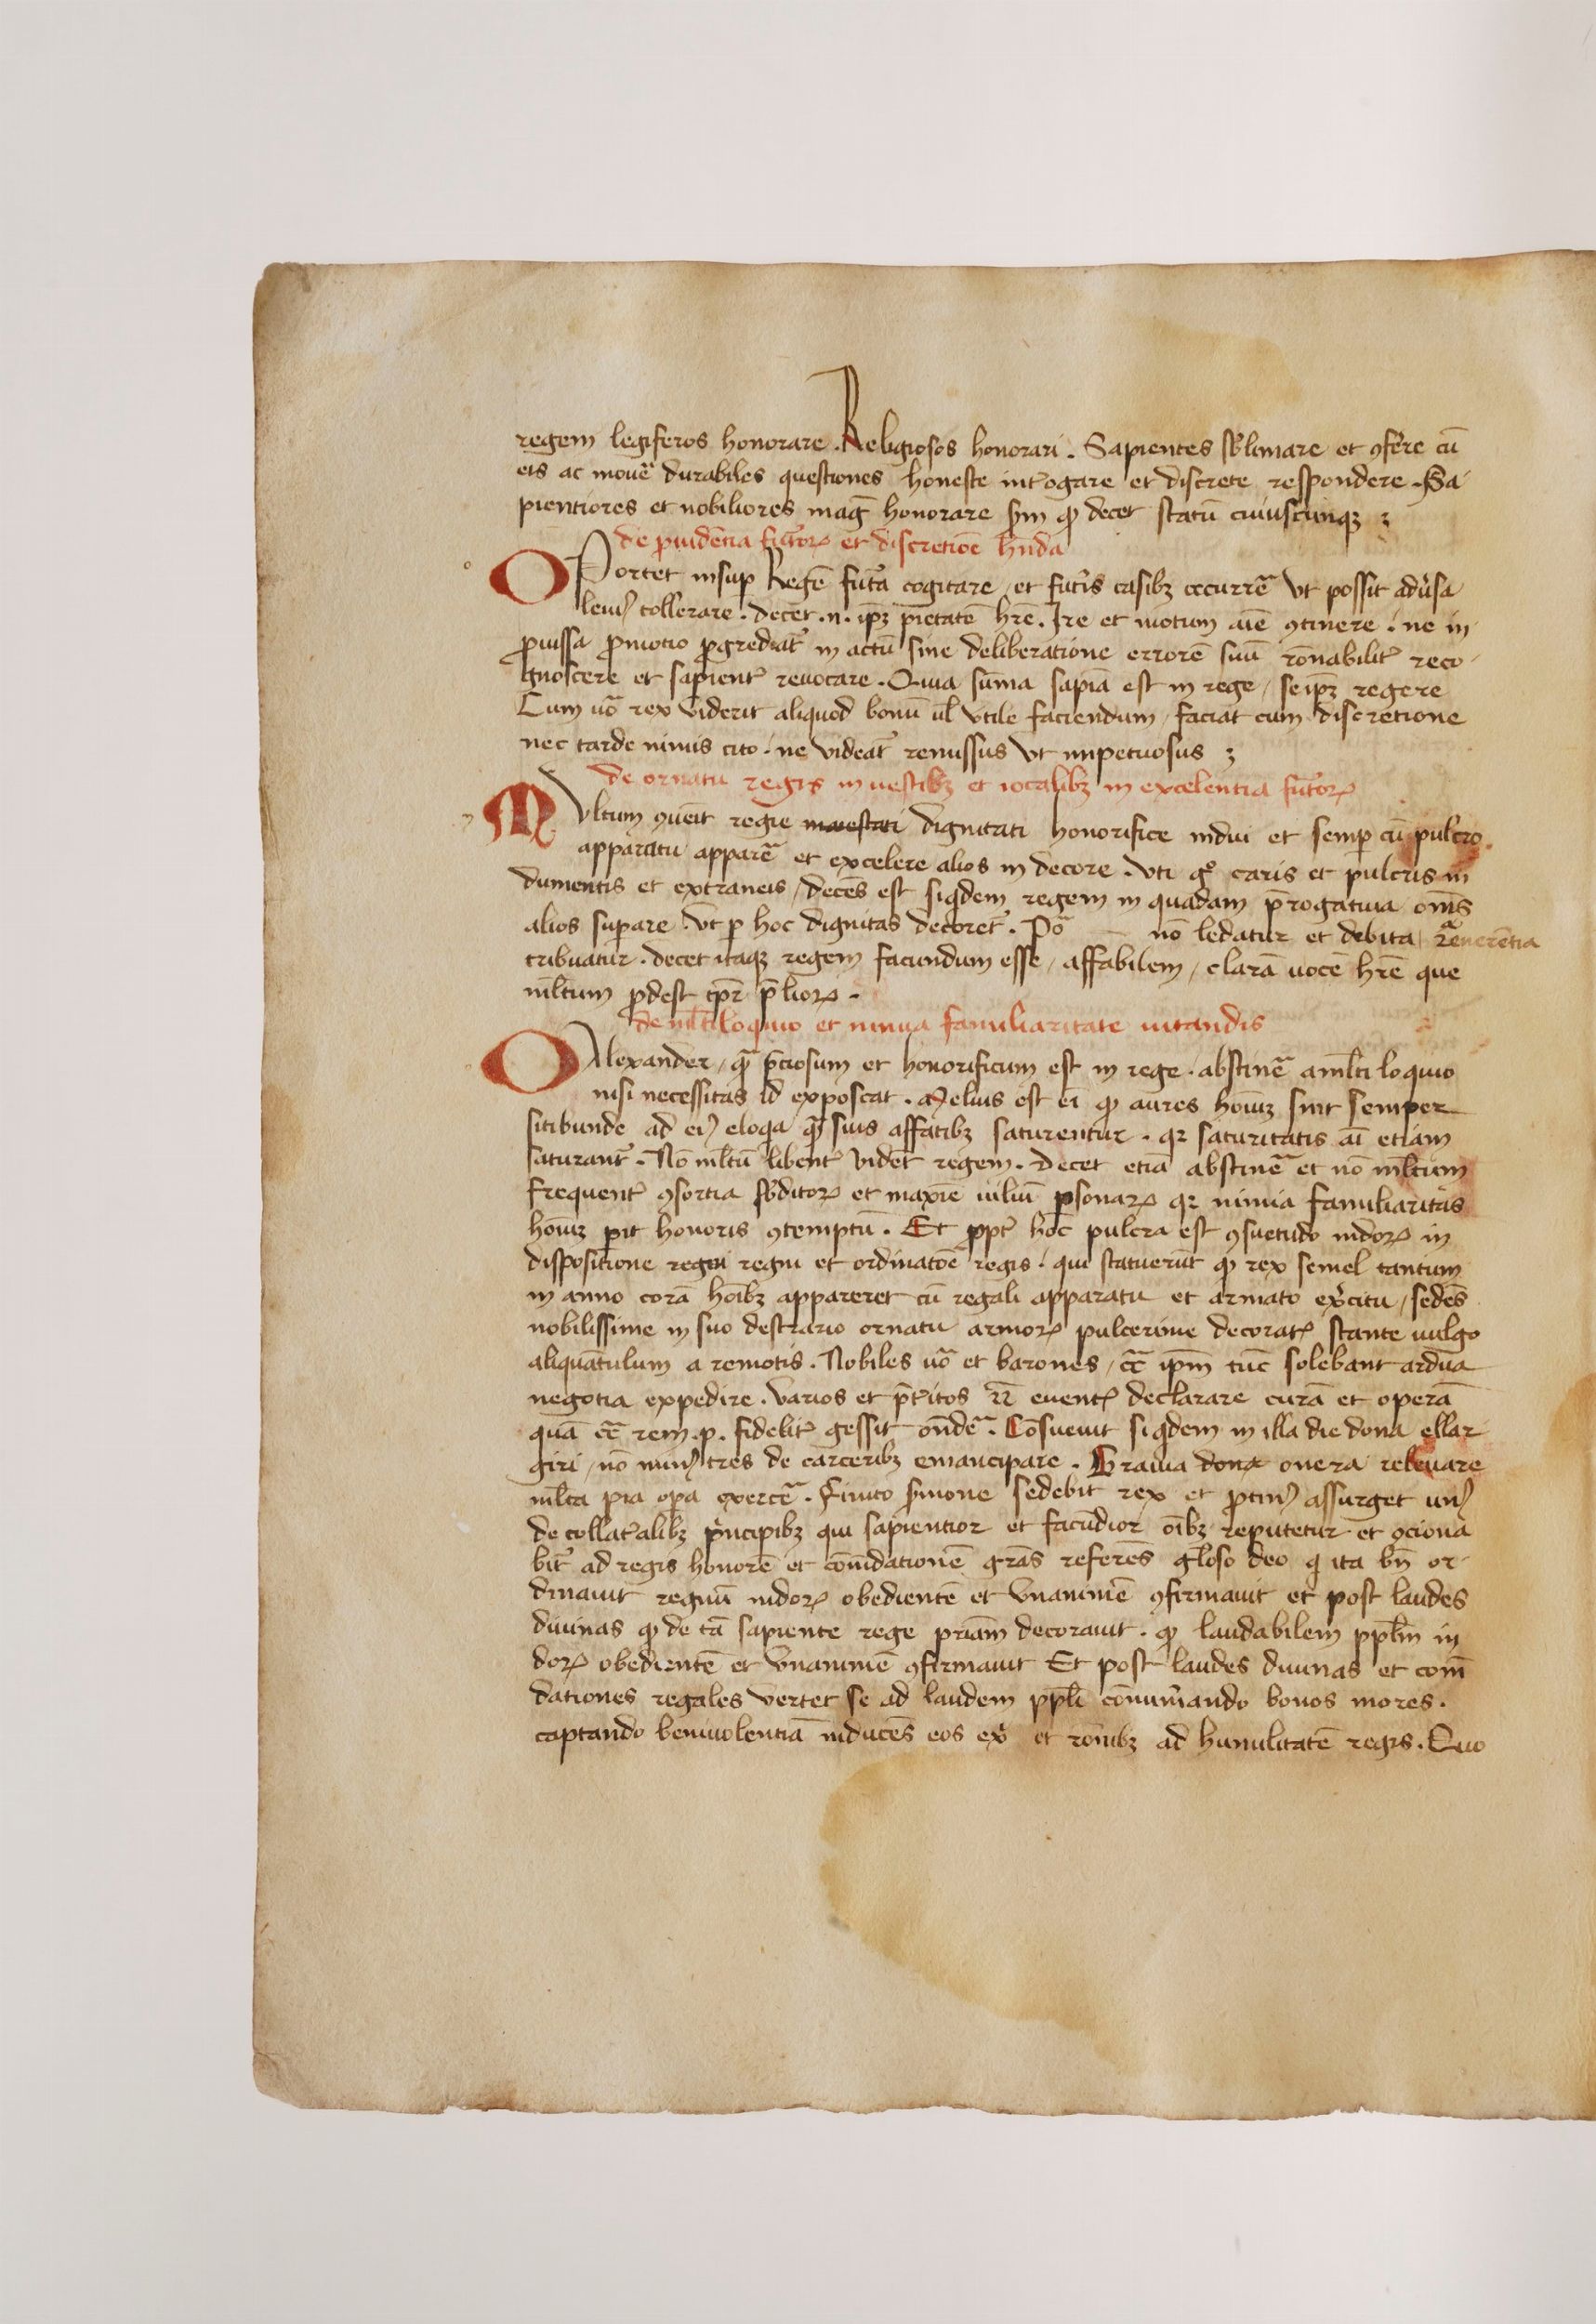 regem legiferos honorare. Religiosos honorari. Sapientes sƀlimare et ꝯfere cū
eis ac mouē durabiles questiones honeste int̾ogare et discrete respondere. Sa
pientiores et nobiliores mag̅ honorare sm̅ ꝙ decet statū cuiuscunqꝫ ꝫ
de ꝓuidēcia futoꝝ et discretiōe hn̄da
OPortet insuꝑ Regē futa cogitare et futis casibꝫ occurre̅ vt possit adūsa
leuiꝰ tollerare. decet .n. ipꝫ pietatē hr̄e. Ire et motum aīe ꝯtinere. ne in
ꝓuissa ꝓmotio ꝓgrediat̾ in actū sine deliberatione errorē suū rōnabilit̾ reco
gnoscere et sapient̾ reuocare. Quia sūma sapīa est in rege / seipꝫ regere
Cum uō rex viderit aliquod bonū ul̄ vtile faciendum / faciat cum discretione
nec tarde nimis cito. ne videat̾ remissus vt impetuosus ꝫ
de ornatu regis in uestibꝫ et iocalibꝫ in excelentia futoꝝ
MVltum ꝯueīt regie maiestati dignitati honorifice indui et semꝑ cū pulcro
apparatu appare̅ et excelere alios in decore. vti gͦ caris et pulcris in
dumentis et extraneis / decēs est siqdem regem in quadam p̄rogatiua om̄s
alios suꝑare. vt ꝑ hoc dignitas decoret̾. Pō nō ledatur et debita reuerētia
tribuatur. decet itaqꝫ regem facundum esse / affabilem / clarā uocē hr̄e que
ml̄tum ꝓdest tp̄r p̄lioꝝ.
de ml̄tiloquio et nimia familiaritate uitandis
O Alexander / qm̄ p̄ciosum et honorificum est in rege. abstine̅ aml̄ti loquio
nisi necessitas id exposcat. Melius est eī ꝙ aures hōīuꝫ sint semper
sitibunde ad eiꝰ eloqa qm̄ suis affatibꝫ saturentur. qꝛ saturitatis aī etiam
saturant̾. Nō ml̄tū libent̾ vidēt regem. decet etiā abstine̅ et nō ml̄tum
frequent̾ ꝯsortia sƀditoꝝ et maxīe uiliū ꝑsonaꝝ qꝛ nimia familiaritas
hōīuꝫ parit honoris ꝯtemptū. Et ꝓpt̾ hoc pulcra est ꝯsuetudo indoꝝ in
dispositione regni regni et ordinatōe regis. qui statuerūt ꝙ rex semel tantum
in anno corā hōībꝫ appareret cū regali apparatu et armato ex̄citu / sedēs
nobilissime in suo destrario ornatu armoꝝ pulcerime decorat̾ stante uulgo
aliquātulum a remotis. Nobiles uō et barones / cc̄ ipm̄ tūc solebant ardua
negotia expedire. varios et p̄titos rr̄ euent̾ declarare curā et operā
quā cc̄ rem .p. fidelit̾ gessit onde̅. Cōsueuit siqdem in illa die dona ellar
giri / nō minꝰ tres de carceribꝫ emancipare. Grauia dona onera releuare
ml̄ta pia oꝑa exerce̅. Finito smone sedebit rex et ꝓtinꝰ assurget unꝰ
de collat̾alibꝫ pncipibꝫ qui sapientior et facūdior oībꝫ reputetur et ꝯciona
bit̾ ad regis honorē et cōmdationē gr̄as referēs gl̄oso deo q ita bn̄ or
dinauit regnū indoꝝ obedientē et vnanimē ꝯfirmauit et post laudes
diuinas ꝙ de tā sapiente rege pr̄iam decorauit. ꝙ laudabilem ppl̄m in
doꝝ obedientē et vnanimē ꝯfirmauit Et post laudes diuinas et com̄
dationes regales vertet se ad laudem ppl̄i cōnum̄ando bonos mores.
captando beniuolentiā inducēs eos ex̄ et rōnibꝫ ad humilitatē regis. Quo